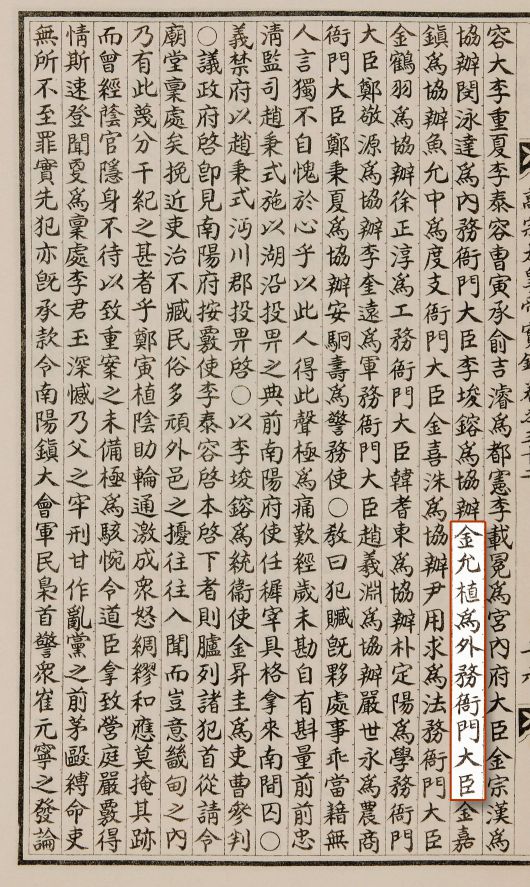 容大李重夏李泰容曹寅承俞吉濬爲都憲李載冕爲宮內府大臣金宗漢爲
協辦閔泳達爲內務衙門大臣李埈鎔爲協辦金允植爲外務衙門大臣金嘉
鎭爲協辦魚允中爲度支衙門大臣金喜洙爲協辦尹用求爲法務衙門大臣
金鶴羽爲協辦徐正淳爲工務衙門大臣韓耆東爲協辦朴定陽爲學務衙門
大臣鄭敬源爲協辦李奎遠爲軍務衙門大臣趙義淵爲協辦嚴世永爲農商
衙門大臣鄭秉夏爲協辦安駉壽爲警務使○敎曰犯贓旣夥處事乖當籍無
人言獨不自愧於心乎以此人得此聲極爲痛歎經歲未勘自有斟量前前忠
淸監司趙秉式施以湖沿投畀之典前南陽府使任穉宰具格拿來南間囚○
義禁府以趙秉式沔川郡投畀啓○以李埈鎔爲統衛使金昇圭爲吏曹參判
○議政府啓卽見南陽府按覈使李泰容啓本啓下者則臚列諸犯首從請令
廟堂稟處矣挽近吏治不臧民俗多頑外邑之擾往往入聞而豈意畿甸之內
乃有此蔑分干紀之甚者乎鄭寅植陰助輪通激成衆怒綢繆和應莫掩其跡
而曾經蔭官隱身不待以致重案之未備極爲駭惋令道臣拿致營庭嚴覈得
情斯速登聞更爲稟處李君玉深憾乃父之牢刑甘作亂黨之前茅毆縛命吏
無所不至罪實先犯亦旣承款令南陽鎭大會軍民梟首警衆崔元寧之發論